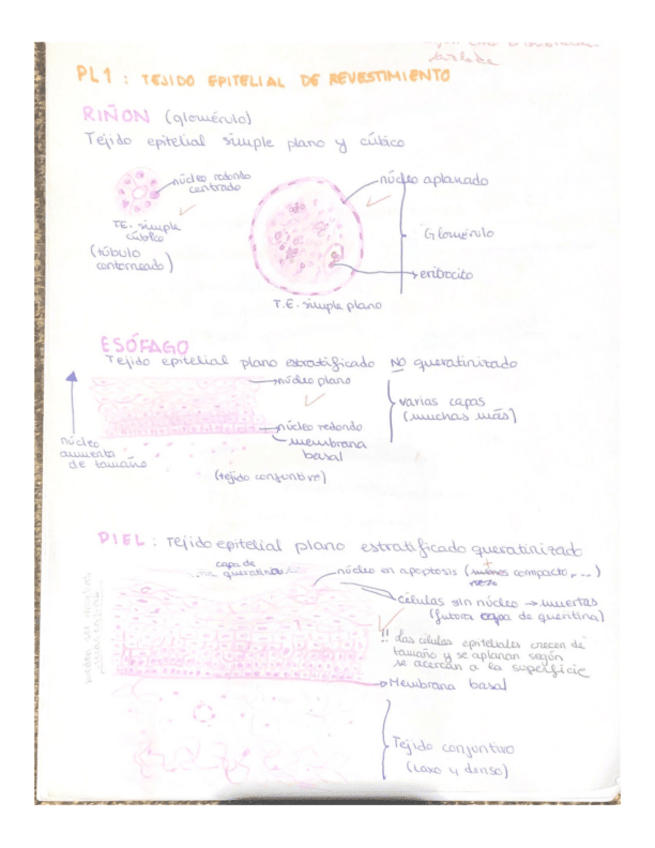 PL1: TEJIDO EPITELIAL DE REVESTIMIENTO
RIÑON (glomérulo)
Tejido epitelial simple plano y cúbico
núcleo redondo
centrado
T.E. simple
cúbico
(túbulo
contorneado)
núcleo aplanado
Glomérulo
eritrocito
T.E. simple plano
ESÓFAGO
Tejido epitelial plano estratificado NO queratinizado
núcleo plano
varias capas
(muchas más)
núcleo redondo
membrana
basal
núcleo
aumenta
de tamaño
(tejido conjuntivo)
PIEL: Tejido epitelial plano estratificado queratinizado
capa de
queratina
núcleo en apoptosis ( compacto, ...)
células sin núcleo → muertas
(futura capa de queritina)
!! Las células epiteliales crecen de
tamaño y se aplanan según
se acercan a la superficie
Membrana basal
Tejido conjuntivo
(Laxo y denso)